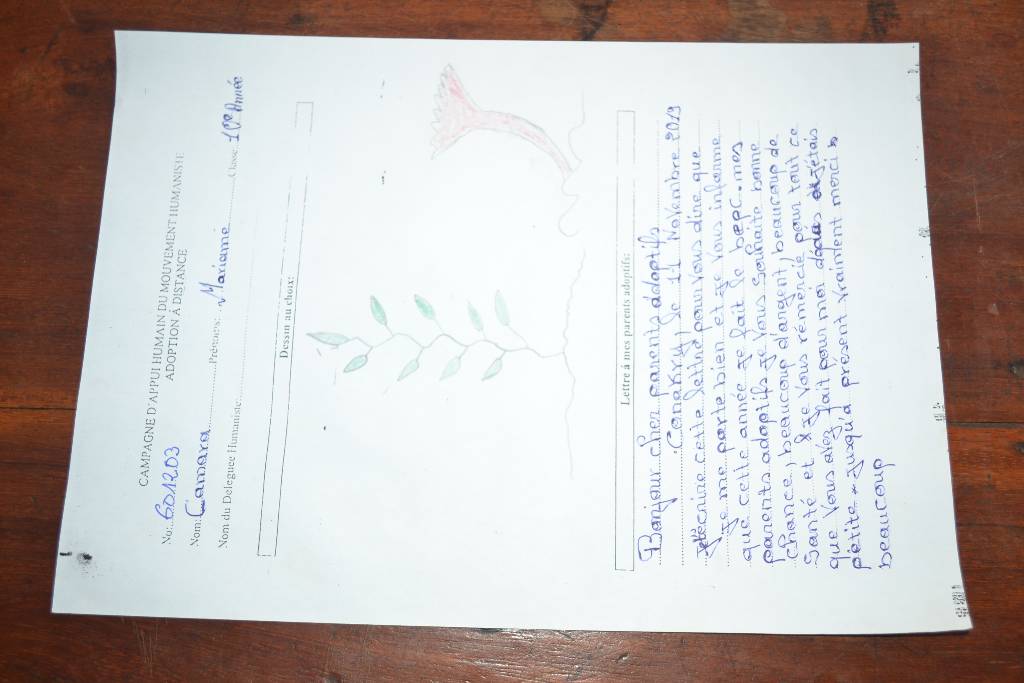 CAMPAGNE D'APPUI HUMAIN DU MOUVEMENT HUMANISTE
ADOPTION À DISTANCE
No: 601203
Nom: Camara Prénoms: Mariame Classe: 10e Année
Nom du Deleguee Humaniste:
Dessin au choix:
Lettre à mes parents adoptifs:
Bonjour cher parents adoptifs
Conakry, le 11 Novembre 2019
j'écrire cette lettre pour vous dire que
je me porte bien et je vous informe
que cette année je fait le bepc. mes
parents adoptifs je vous souhaite bonne
chance, beaucoup d'argent, beaucoup de
Santé et je vous rémercie pour tout ce
que vous avez fait pour moi dépuis j'étais
petite jusqu'a présent vraiment merci
beaucoup